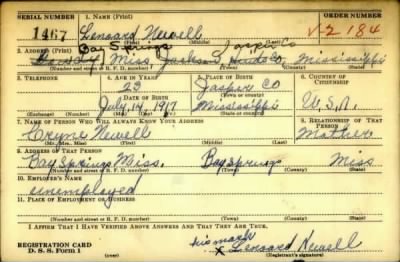 SERIAL NUMBER 1. NAME (Print) ORDER NUMBER
1467 Lenoard Newell V2184
(First) (Middle) (Last)
Bay Springs Jasper Co
2. ADDRESS (Print)
Miss. Jackson Hinds Co. Mississippi
(Number and street or R. F. D. number) (Town) (County) (State)
3. TELEPHONE 4. AGE IN YEARS 5. PLACE OF BIRTH 6. COUNTRY OF CITIZENSHIP
23 Jasper CO
DATE OF BIRTH (Town or county)
July 14, 1917 Mississippi U.S.A.
(Exchange) (Number) (Mo.) (Day) (Yr.) (State or country)
7. NAME OF PERSON WHO WILL ALWAYS KNOW YOUR ADDRESS 8. RELATIONSHIP OF THAT PERSON
Newell Mother
(Mr., Mrs., Miss) (First) (Middle) (Last)
9. ADDRESS OF THAT PERSON
Bay Springs Miss. Bay Springs Miss
(Number and street or R. F. D. number) (Town) (County) (State)
10. EMPLOYER'S NAME
unemployed
11. PLACE OF EMPLOYMENT OR BUSINESS
(Number and street or R. F. D. number) (Town) (County) (State)
I AFFIRM THAT I HAVE VERIFIED ABOVE ANSWERS AND THAT THEY ARE TRUE.
his mark
REGISTRATION CARD x Lenoard Newell
D. S. S. Form 1 (over) (Registrant's signature)